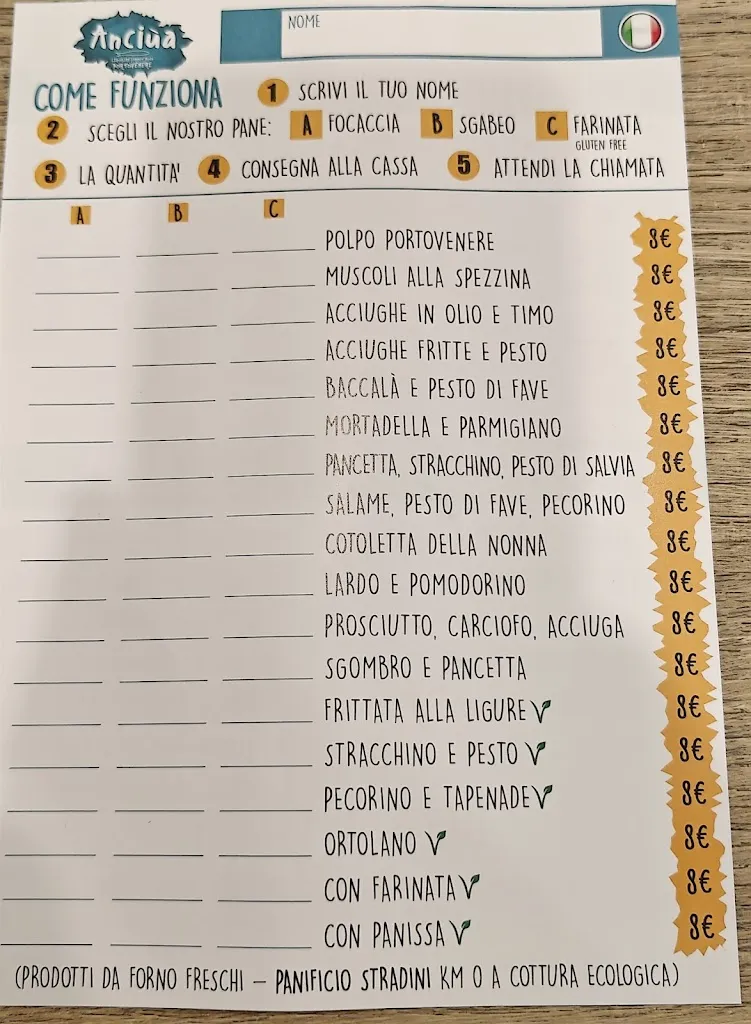 Anciua
NOME
COME FUNZIONA 1 SCRIVI IL TUO NOME
2 SCEGLI IL NOSTRO PANE: A FOCACCIA B SGABEO C FARINATA
GLUTEN FREE
3 LA QUANTITA' 4 CONSEGNA ALLA CASSA 5 ATTENDI LA CHIAMATA
A B C
POLPO PORTOVENERE 8€
MUSCOLI ALLA SPEZZINA 8€
ACCIUGHE IN OLIO E TIMO 8€
ACCIUGHE FRITTE E PESTO 8€
BACCALÀ E PESTO DI FAVE 8€
MORTADELLA E PARMIGIANO 8€
PANCETTA, STRACCHINO, PESTO DI SALVIA 8€
SALAME, PESTO DI FAVE, PECORINO 8€
COTOLETTA DELLA NONNA 8€
LARDO E POMODORINO 8€
PROSCIUTTO, CARCIOFO, ACCIUGA 8€
SGOMBRO E PANCETTA 8€
FRITTATA ALLA LIGURE 8€
STRACCHINO E PESTO 8€
PECORINO E TAPENADE 8€
ORTOLANO 8€
CON FARINATA 8€
CON PANISSA 8€
(PRODOTTI DA FORNO FRESCHI – PANIFICIO STRADINI KM 0 A COTTURA ECOLOGICA)